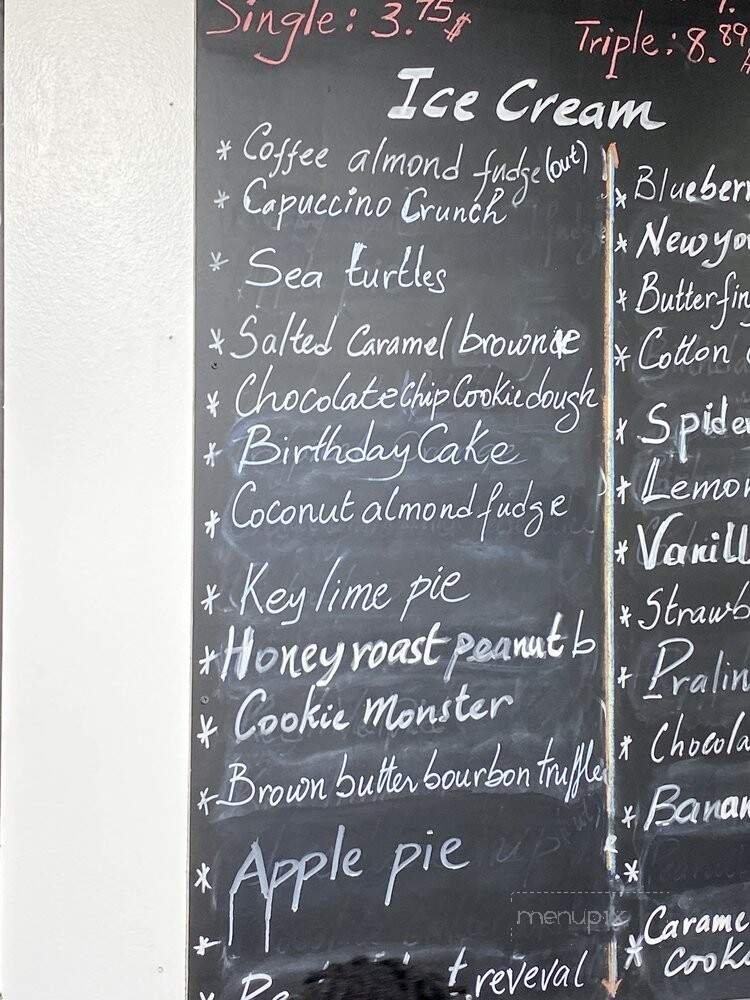 Single: 3.75$
Triple: 8.89
Ice Cream
* Coffee almond fudge (out)
* Capuccino Crunch
* Sea turtles
* Salted Caramel brownie
* Chocolate Chip Cookie dough
* Birthday Cake
* Coconut almond fudge
* Key lime pie
* Honey roast peanut b
* Cookie Monster
* Brown butter bourbon truffle
* Apple pie
*
* reveval
* Blueber
* New yo
* Butterfin
* Cotton
* Spider
* Lemon
* Vanill
* Strawb
* Pralin
* Chocola
* Banan
*
* Carame
Cook
menupix